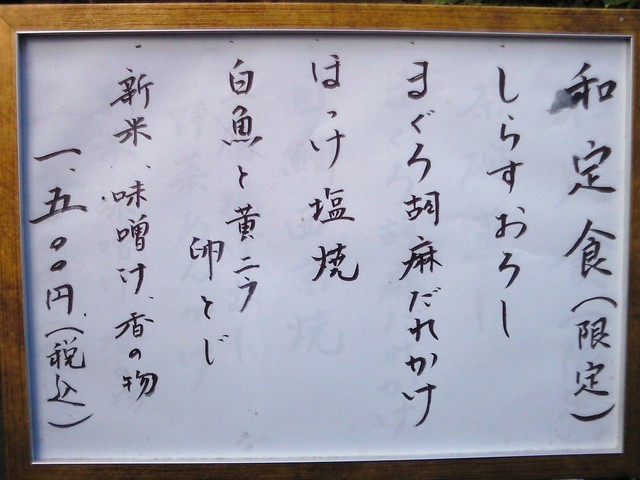 和定食(限定)
・しらすおろし
・まぐろ胡麻だれかけ
・ほっけ塩焼
・白魚と黄ニラ
卵とじ
・新米、味噌汁、香の物
一、五〇〇円(税込)